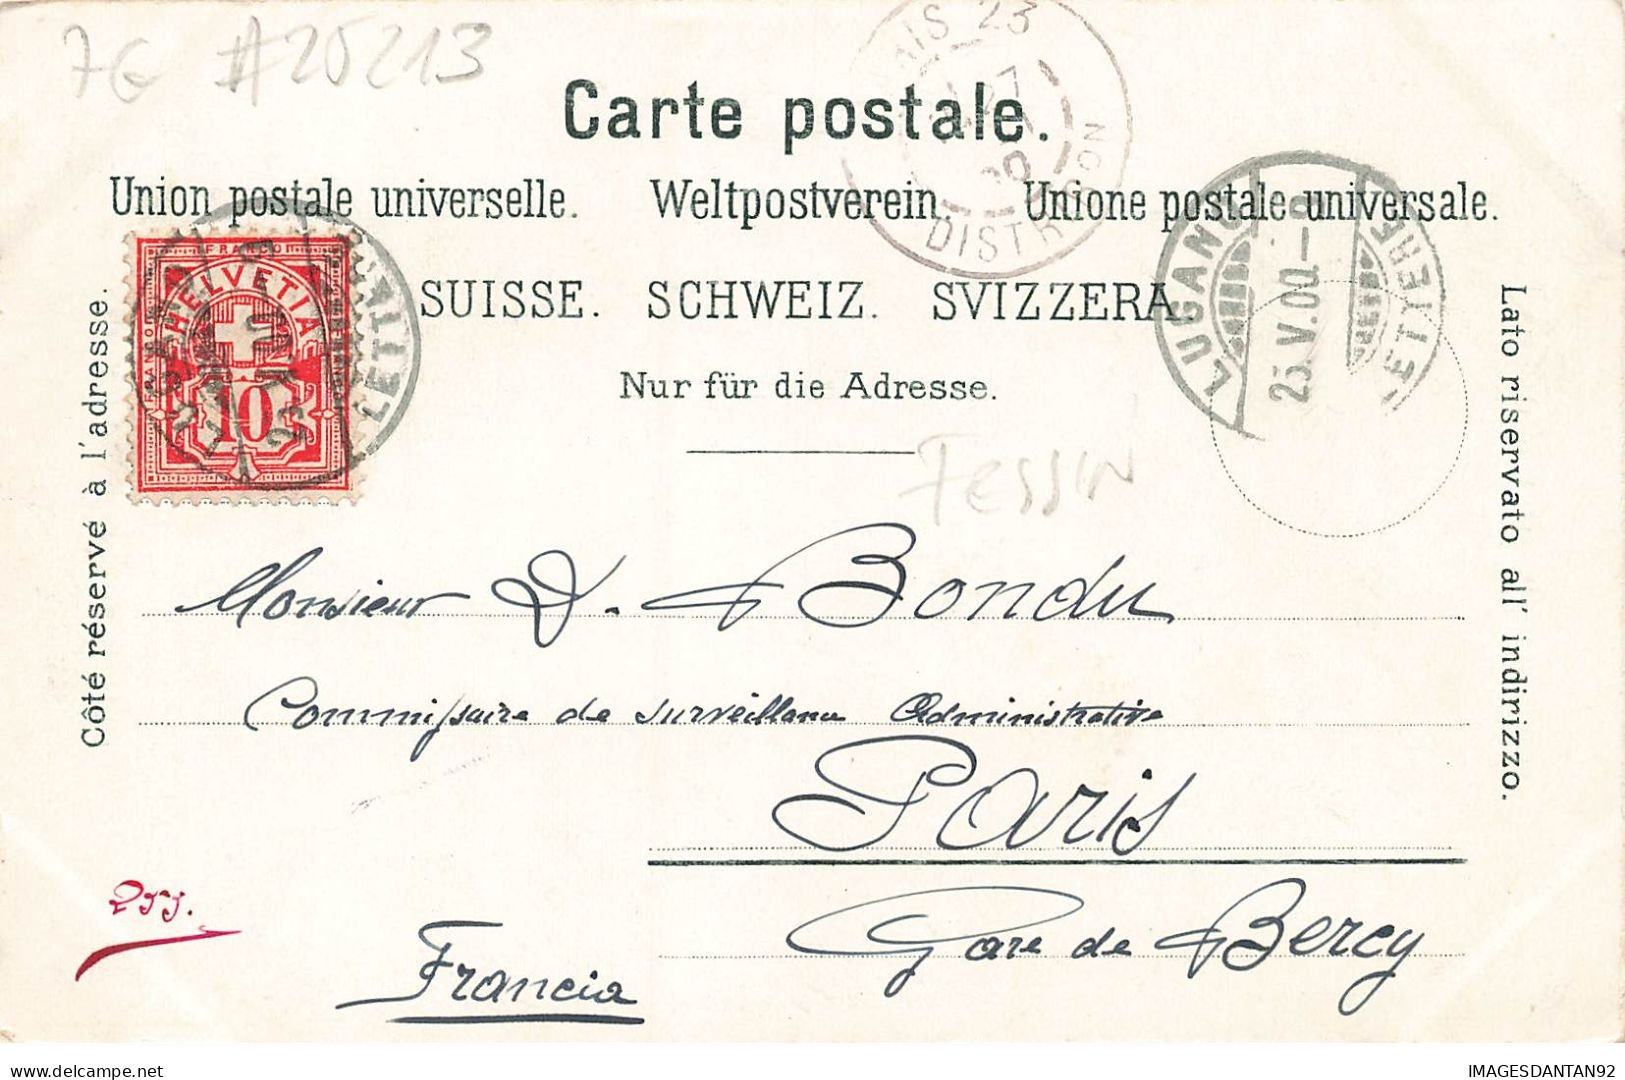 7€ #25213
Carte postale.
Union postale universelle. Weltpostverein. Unione postale universale.
SUISSE. SCHWEIZ. SVIZZERA.
Nur für die Adresse.
Côté réservé à l'adresse.
Lato riservato all' indirizzo.
FRANCO
HELVETIA
10
LETT
23
DISTRIBUTION
LUGANO
25.V.00.–9
LETTERE
TESSIN
Monsieur D. Bondu
Commissaire de surveillance Administrative
Paris
Gare de Bercy
Francia
255.
IMAGESDANTAN92